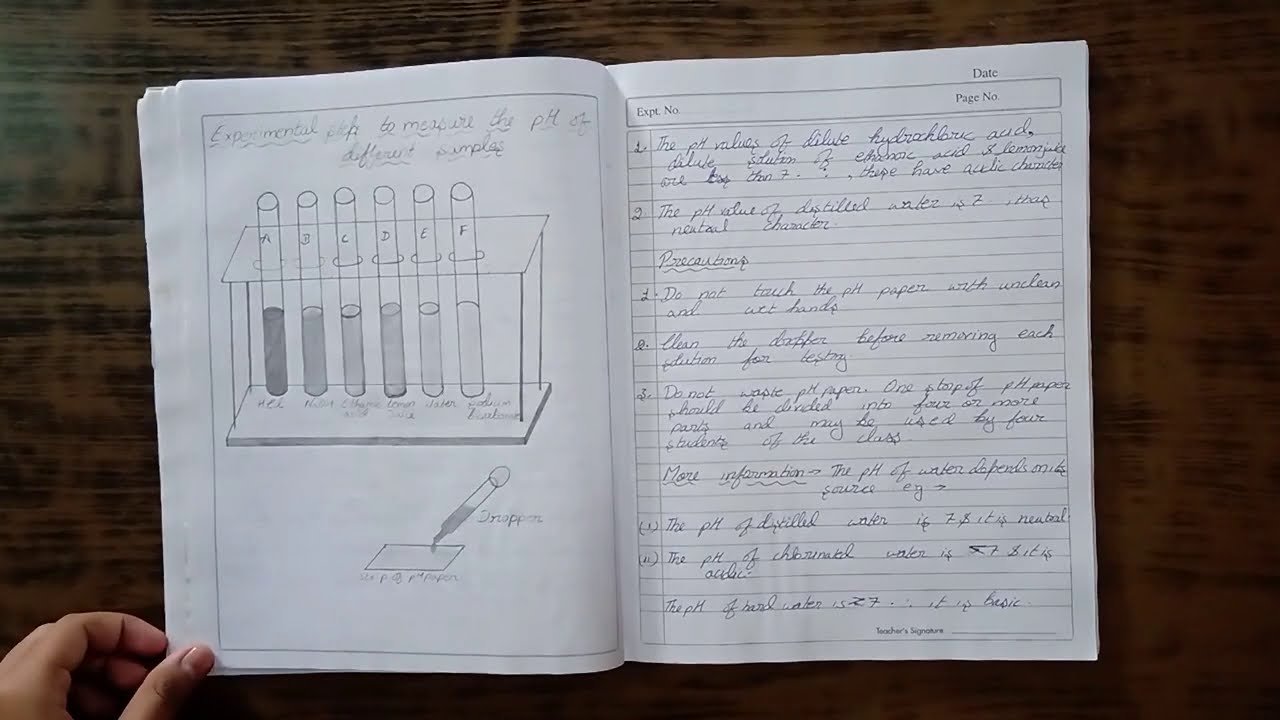 Experimental step to measure the pH of
different samples
A B C D E F
HCl NaOH Ethanoic acid Lemon Juice Water Sodium
Dropper
pH paper
Date
Expt. No. Page No.
1. The pH values of dilute hydrochloric acid,
dilute solution of ethanoic acid & lemon juice
are less than 7. ∴, these have acidic character
2. The pH value of distilled water is 7. it has
neutral character.
Precautions
1. Do not touch the pH paper with unclean
and wet hands
2. Clean the dropper before removing each
solution for testing.
3. Do not waste pH paper. One strip of pH paper
should be divided into four or more
parts and may be used by four
students of the class.
More information → The pH of water depends on its
source eg →
(i) The pH of distilled water is 7 & it is neutral
(ii) The pH of chlorinated water is <7 & it is
acidic.
The pH of hard water is >7 ∴ it is basic.
Teacher's Signature